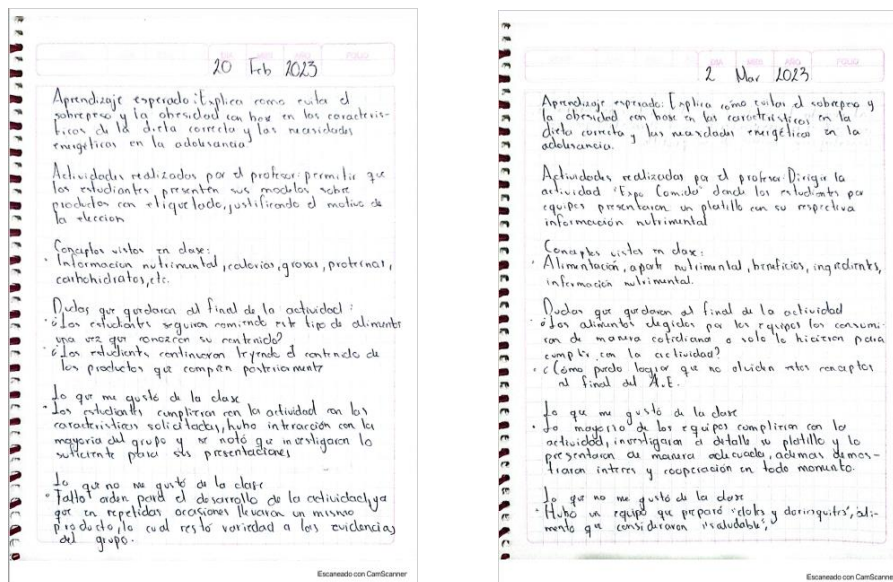 20 Feb 2023
Aprendizaje esperado: Explica como evita el
sobrepeso y la obesidad con base en las caracterís-
ticas de la dieta correcta y las necesidades
energéticas en la adolescencia
Actividades realizadas por el profesor: permitir que
los estudiantes presenten sus modelos sobre
productos con etiquetado, justificando el motivo de
la eleccion
Conceptos vistos en clase:
· Información nutrimental, calorias, grasas, proteínas,
carbohidratos, etc.
Dudas que quedaron al final de la actividad:
· ¿Los estudiantes seguiran comiendo este tipo de alimentos
una vez que conozcan su contenido?
· ¿Los estudiantes continuaran leyendo el contenido de
los productos que compren posteriormente
Lo que me gustó de la clase
· Los estudiantes cumplieron con la actividad con las
caracteristicas solicitadas, hubo interacción con la
mayoria del grupo y se notó que investigaron lo
suficiente para sus presentaciones
Lo que no me gustó de la clase
· Faltó orden para el desarrollo de la actividad, ya
que en repetidas ocasiones llevaron un mismo
producto, lo cual restó variedad a las evidencias
del grupo.
Escaneado con CamScanner
DIA MES AÑO FOLIO
2 Mar 2023
Aprendizaje esperado: Explica cómo evitar el sobrepeso y
la obesidad con base en las características en la
dieta correcta y las necesidades energéticas en la
adolescencia.
Actividades realizadas por el profesor: Dirigir la
actividad "Expo Comida" donde los estudiantes por
equipos presentaron un platillo con su respectiva
información nutrimental
Conceptos vistos en clase:
· Alimentación, aporte nutrimental, beneficios, ingredientes,
información nutrimental.
Dudas que quedaron al final de la actividad
· ¿Los alimentos elegidos por los equipos los consumi-
ran de manera cotidiana o solo lo hicieron para
cumplir con la actividad?
· ¿Cómo puedo lograr que no olviden estos conceptos
al final del A.E.
Lo que me gustó de la clase
· La mayoria de los equipos cumplieron con la
actividad, investigaron a detalle su platillo y lo
presentaron de manera adecuada, ademas demos-
traron interes y cooperación en todo momento.
Lo que no me gustó de la clase
· Hubo un equipo que preparó "elotes y doriesquites", ali-
mento que consideraron "saludable",
Escaneado con CamScanner